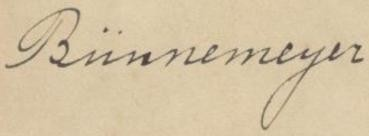 Bünnemeyer